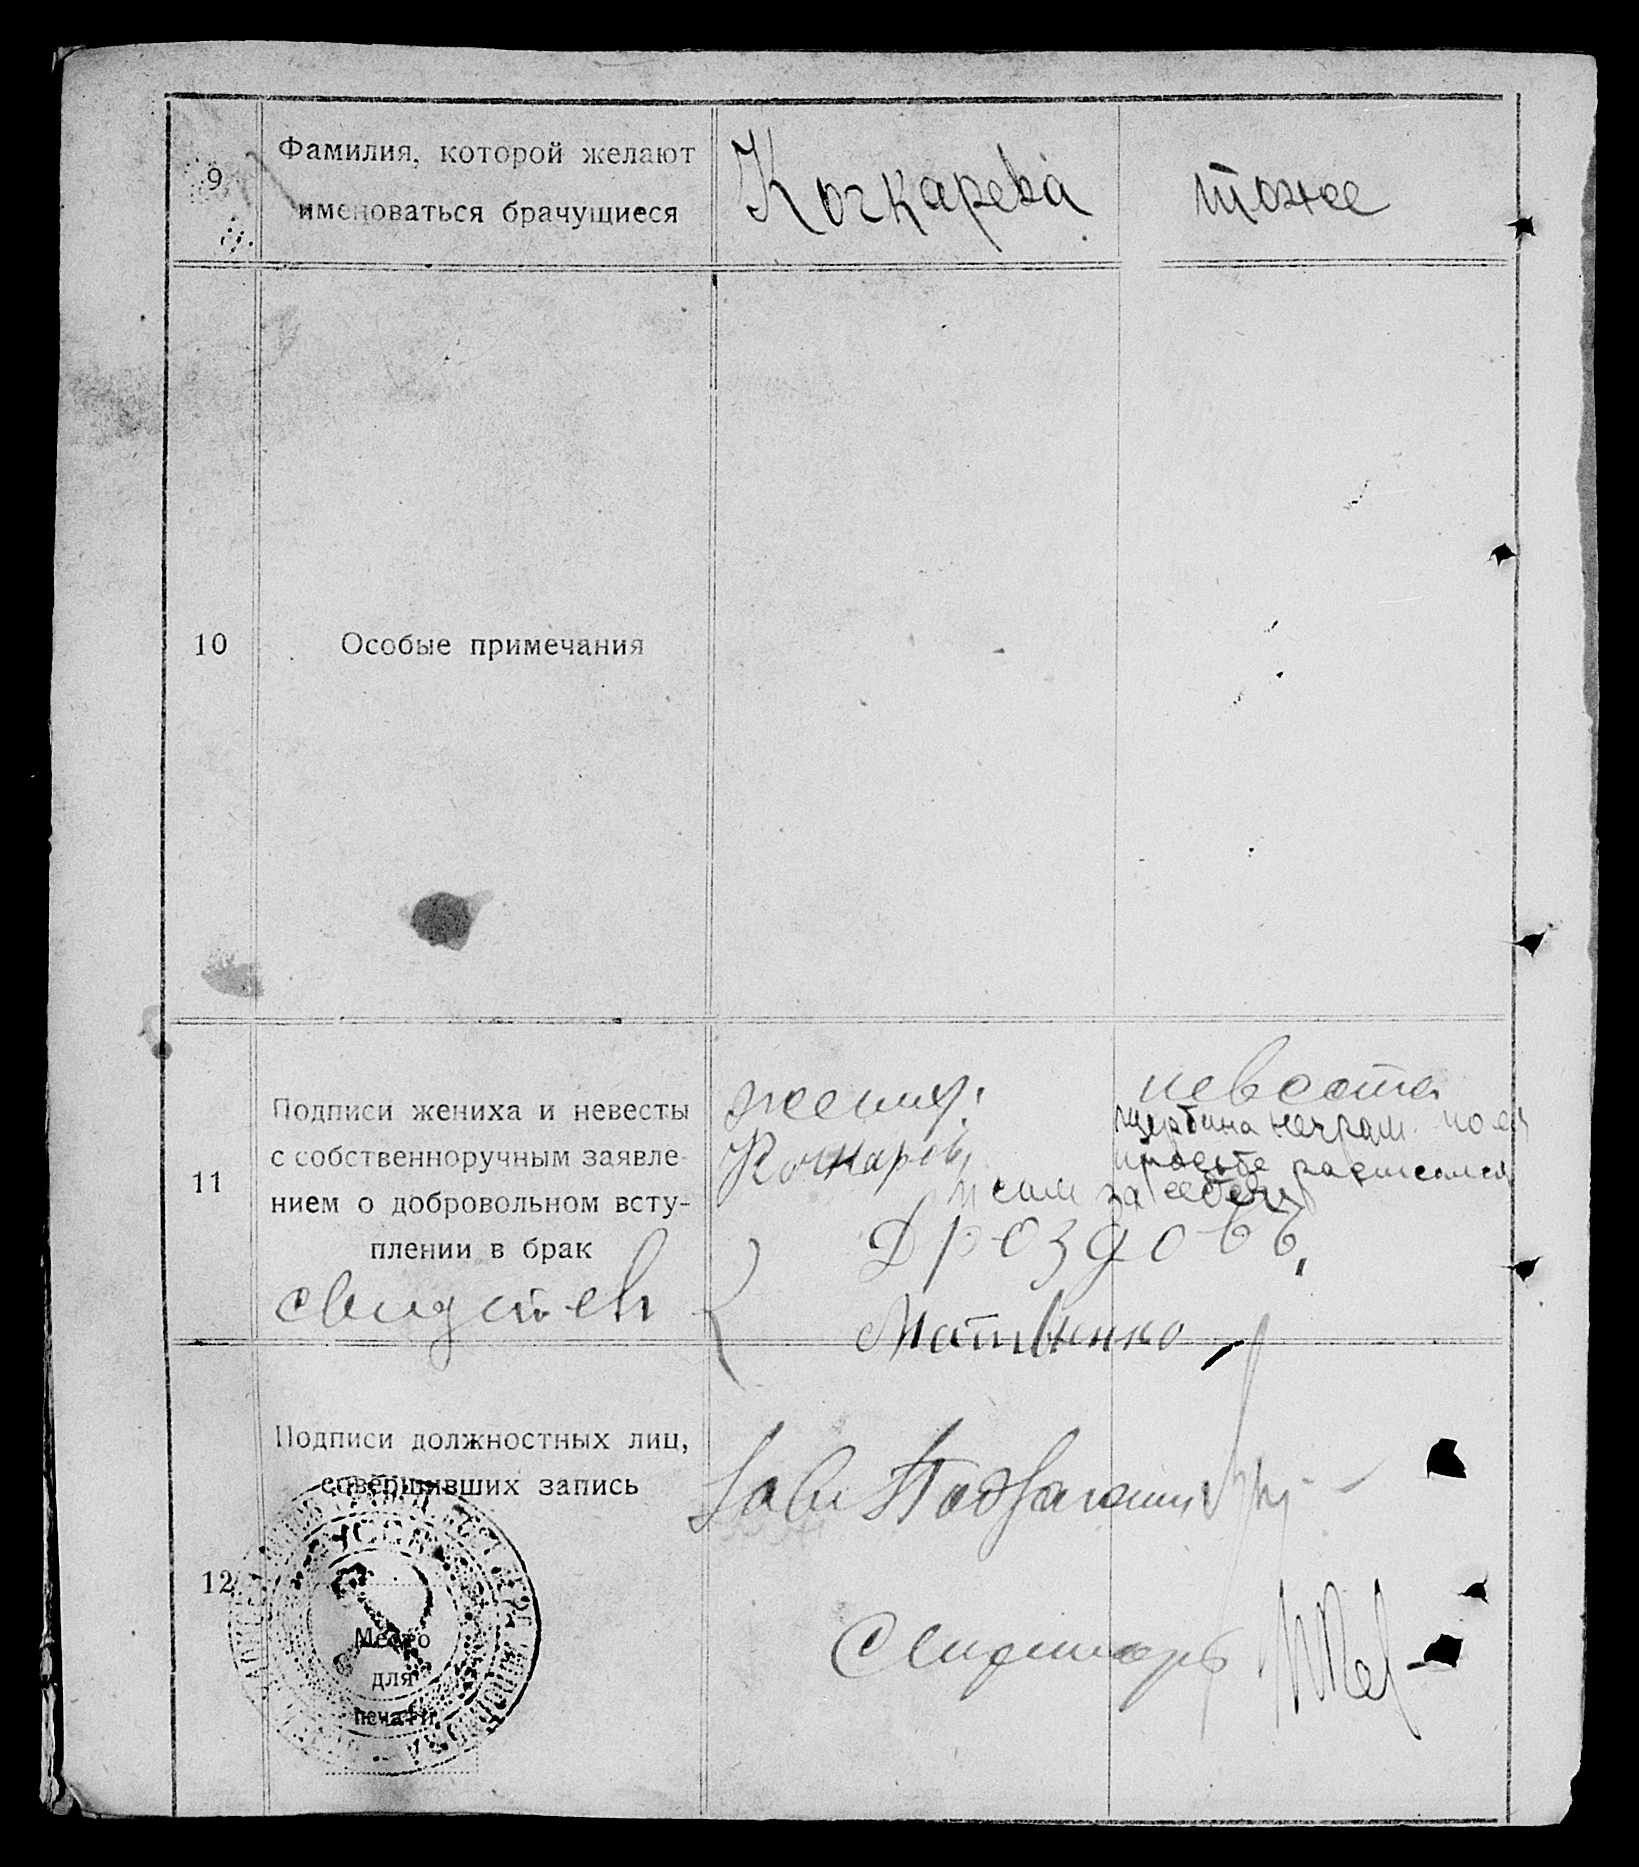 9
Фамилия, которой желают
именоваться брачущиеся
Кочкарева
тоже
10
Особые примечания
11
Подписи жениха и невесты
с собственноручным заявле-
нием о добровольном всту-
плении в брак
свидетел
жених:
невеста
Щербина неграм. по ея
просьбе расписался
и сам за себя
Дроздовъ
Матвиенко
12
Подписи должностных лиц,
совершивших запись
Зав.
УССР
Место
для
печати